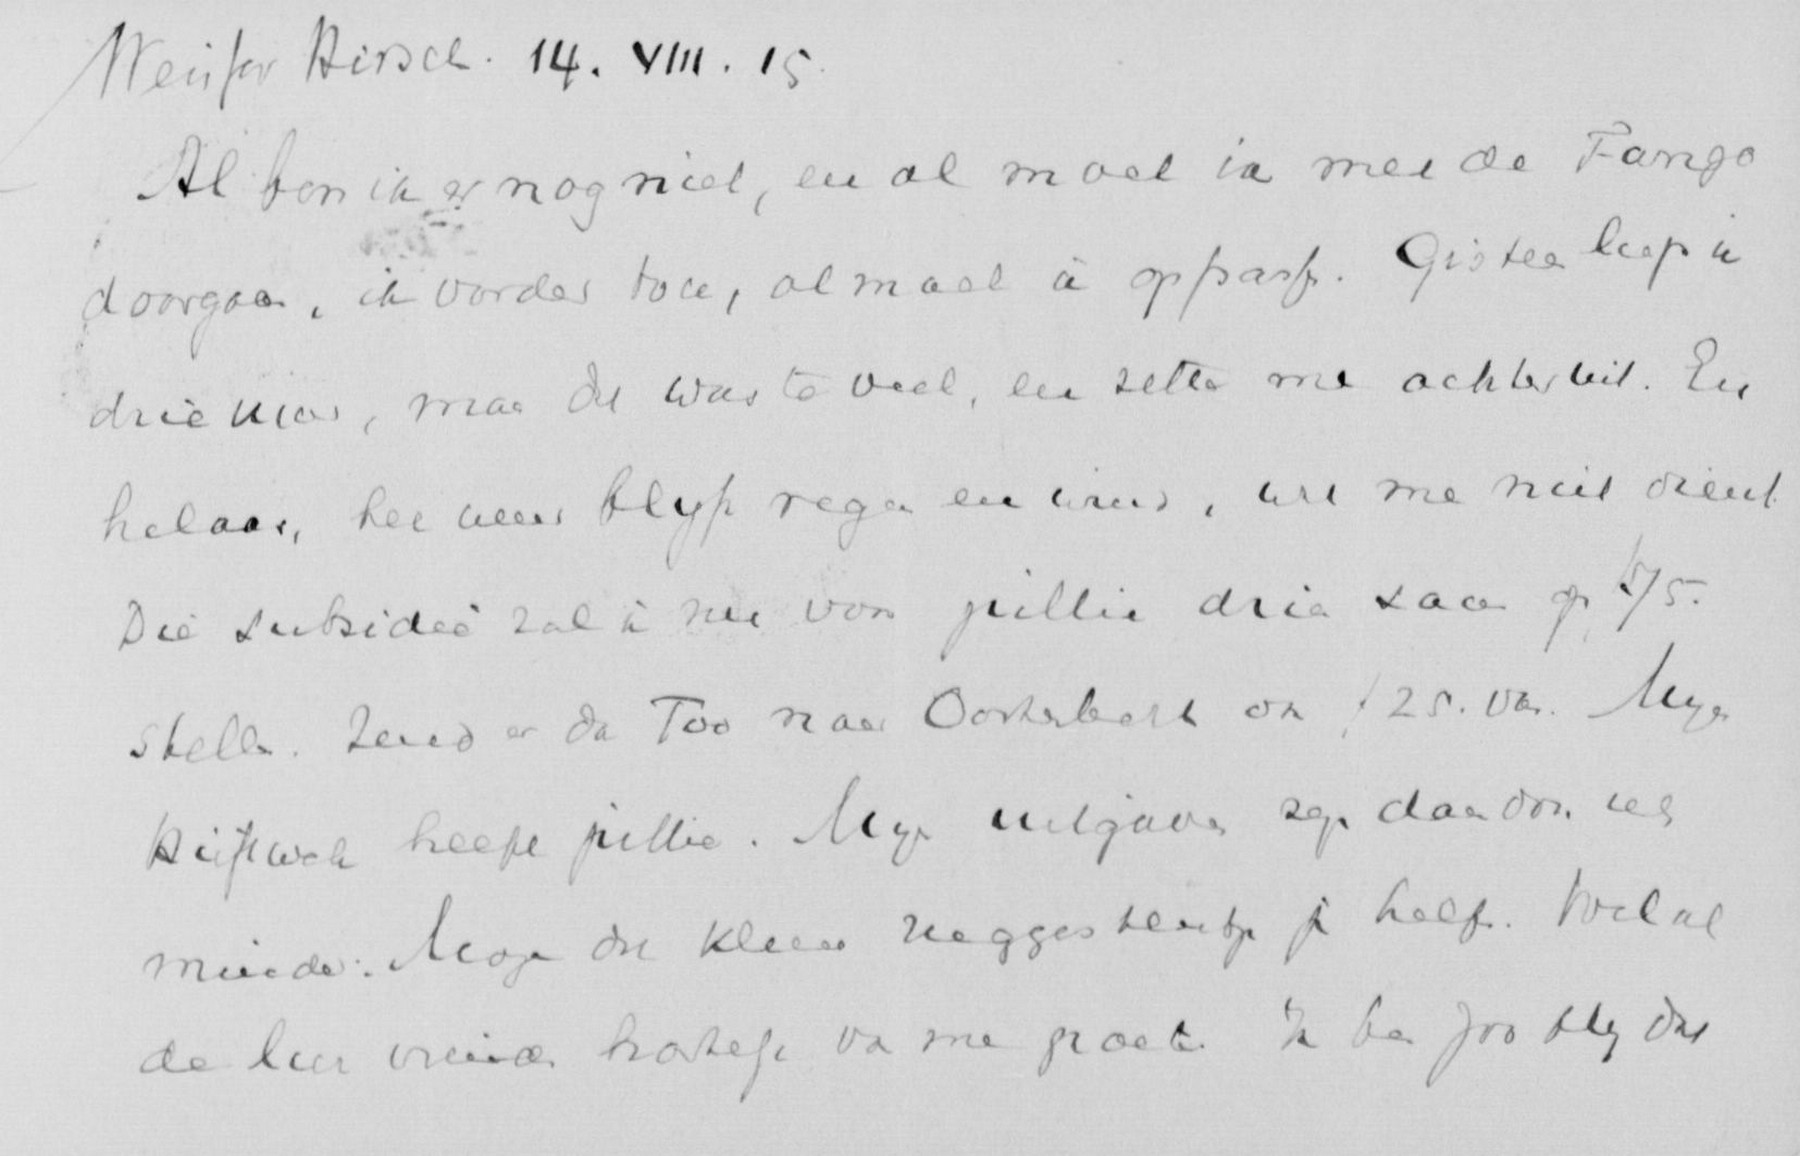 Weisser Hirsch. 14. VIII. 15.
Al ben ik er nog niet, en al moet ik met de Fango
doorgaan, ik vorder toch, al moet ik oppassen. Gisteren liep ik
drie uur, maar dat was te veel, en zette me achteruit. En
helaas, het weer blijft regen en wind, wat me niet dient.
Die subsidie zal ik nu voor jullie drie saam op f 75.
stellen. Zend er dan Too naar Oosterbeek ook f 25. van. Mijn
heeft jullie. Mijn uitgaven zijn daardoor iets
minder. Moge dat kleine ruggesteuntje je helpen. Wil al
de lieve vrienden hartelijk van me groeten. Ik ben zoo blij dat